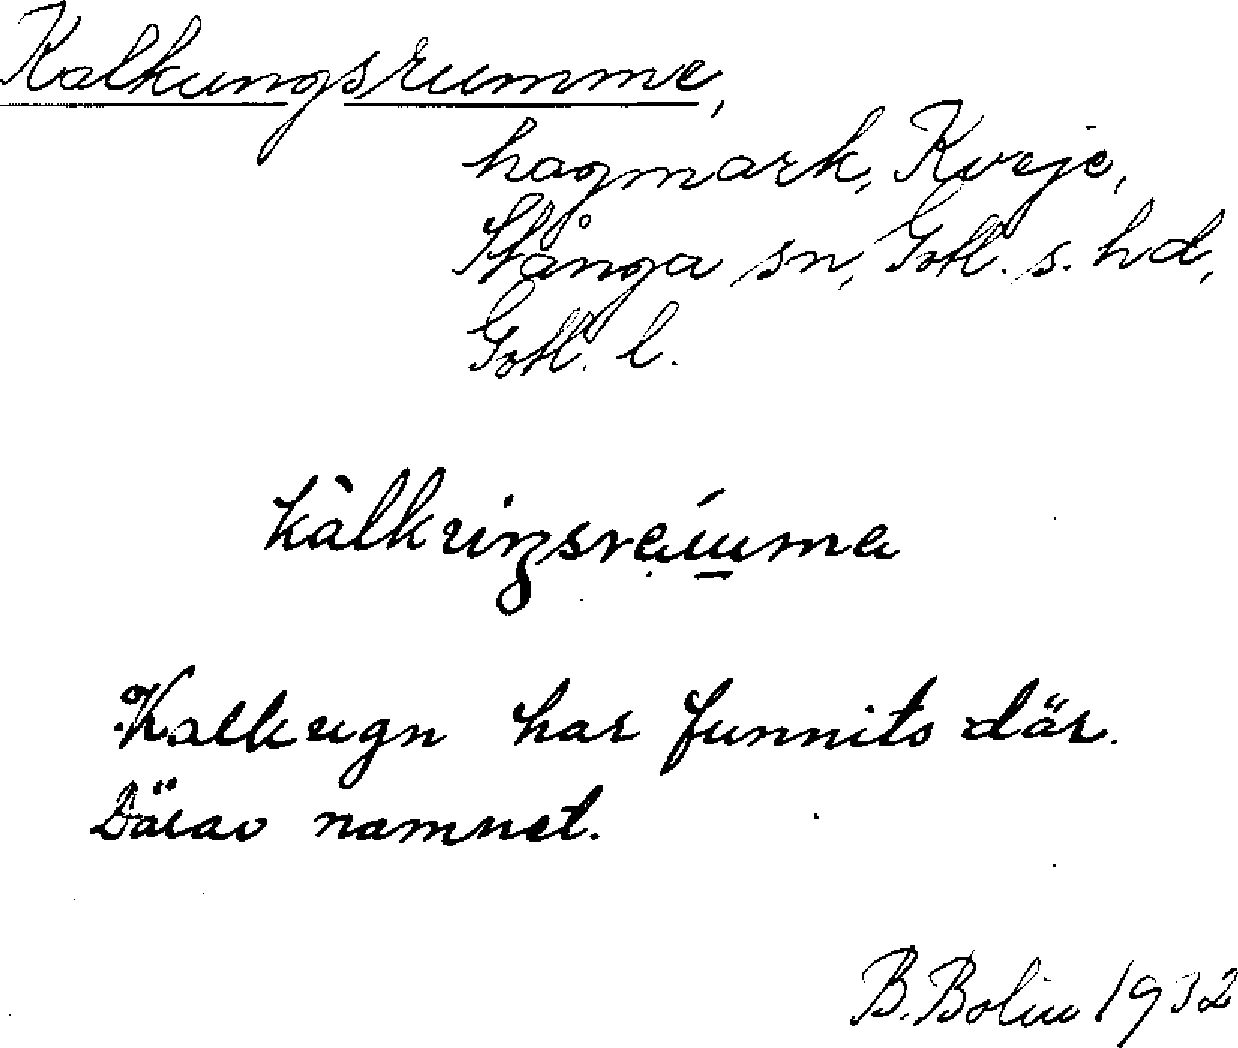 Kalkungsrumme,
hagmark, Kveje,
Stånga sn, Gotl. s. hd,
Gotl. l.
Kalkugn har funnits där.
Därav namnet.
B. Bolin 1932